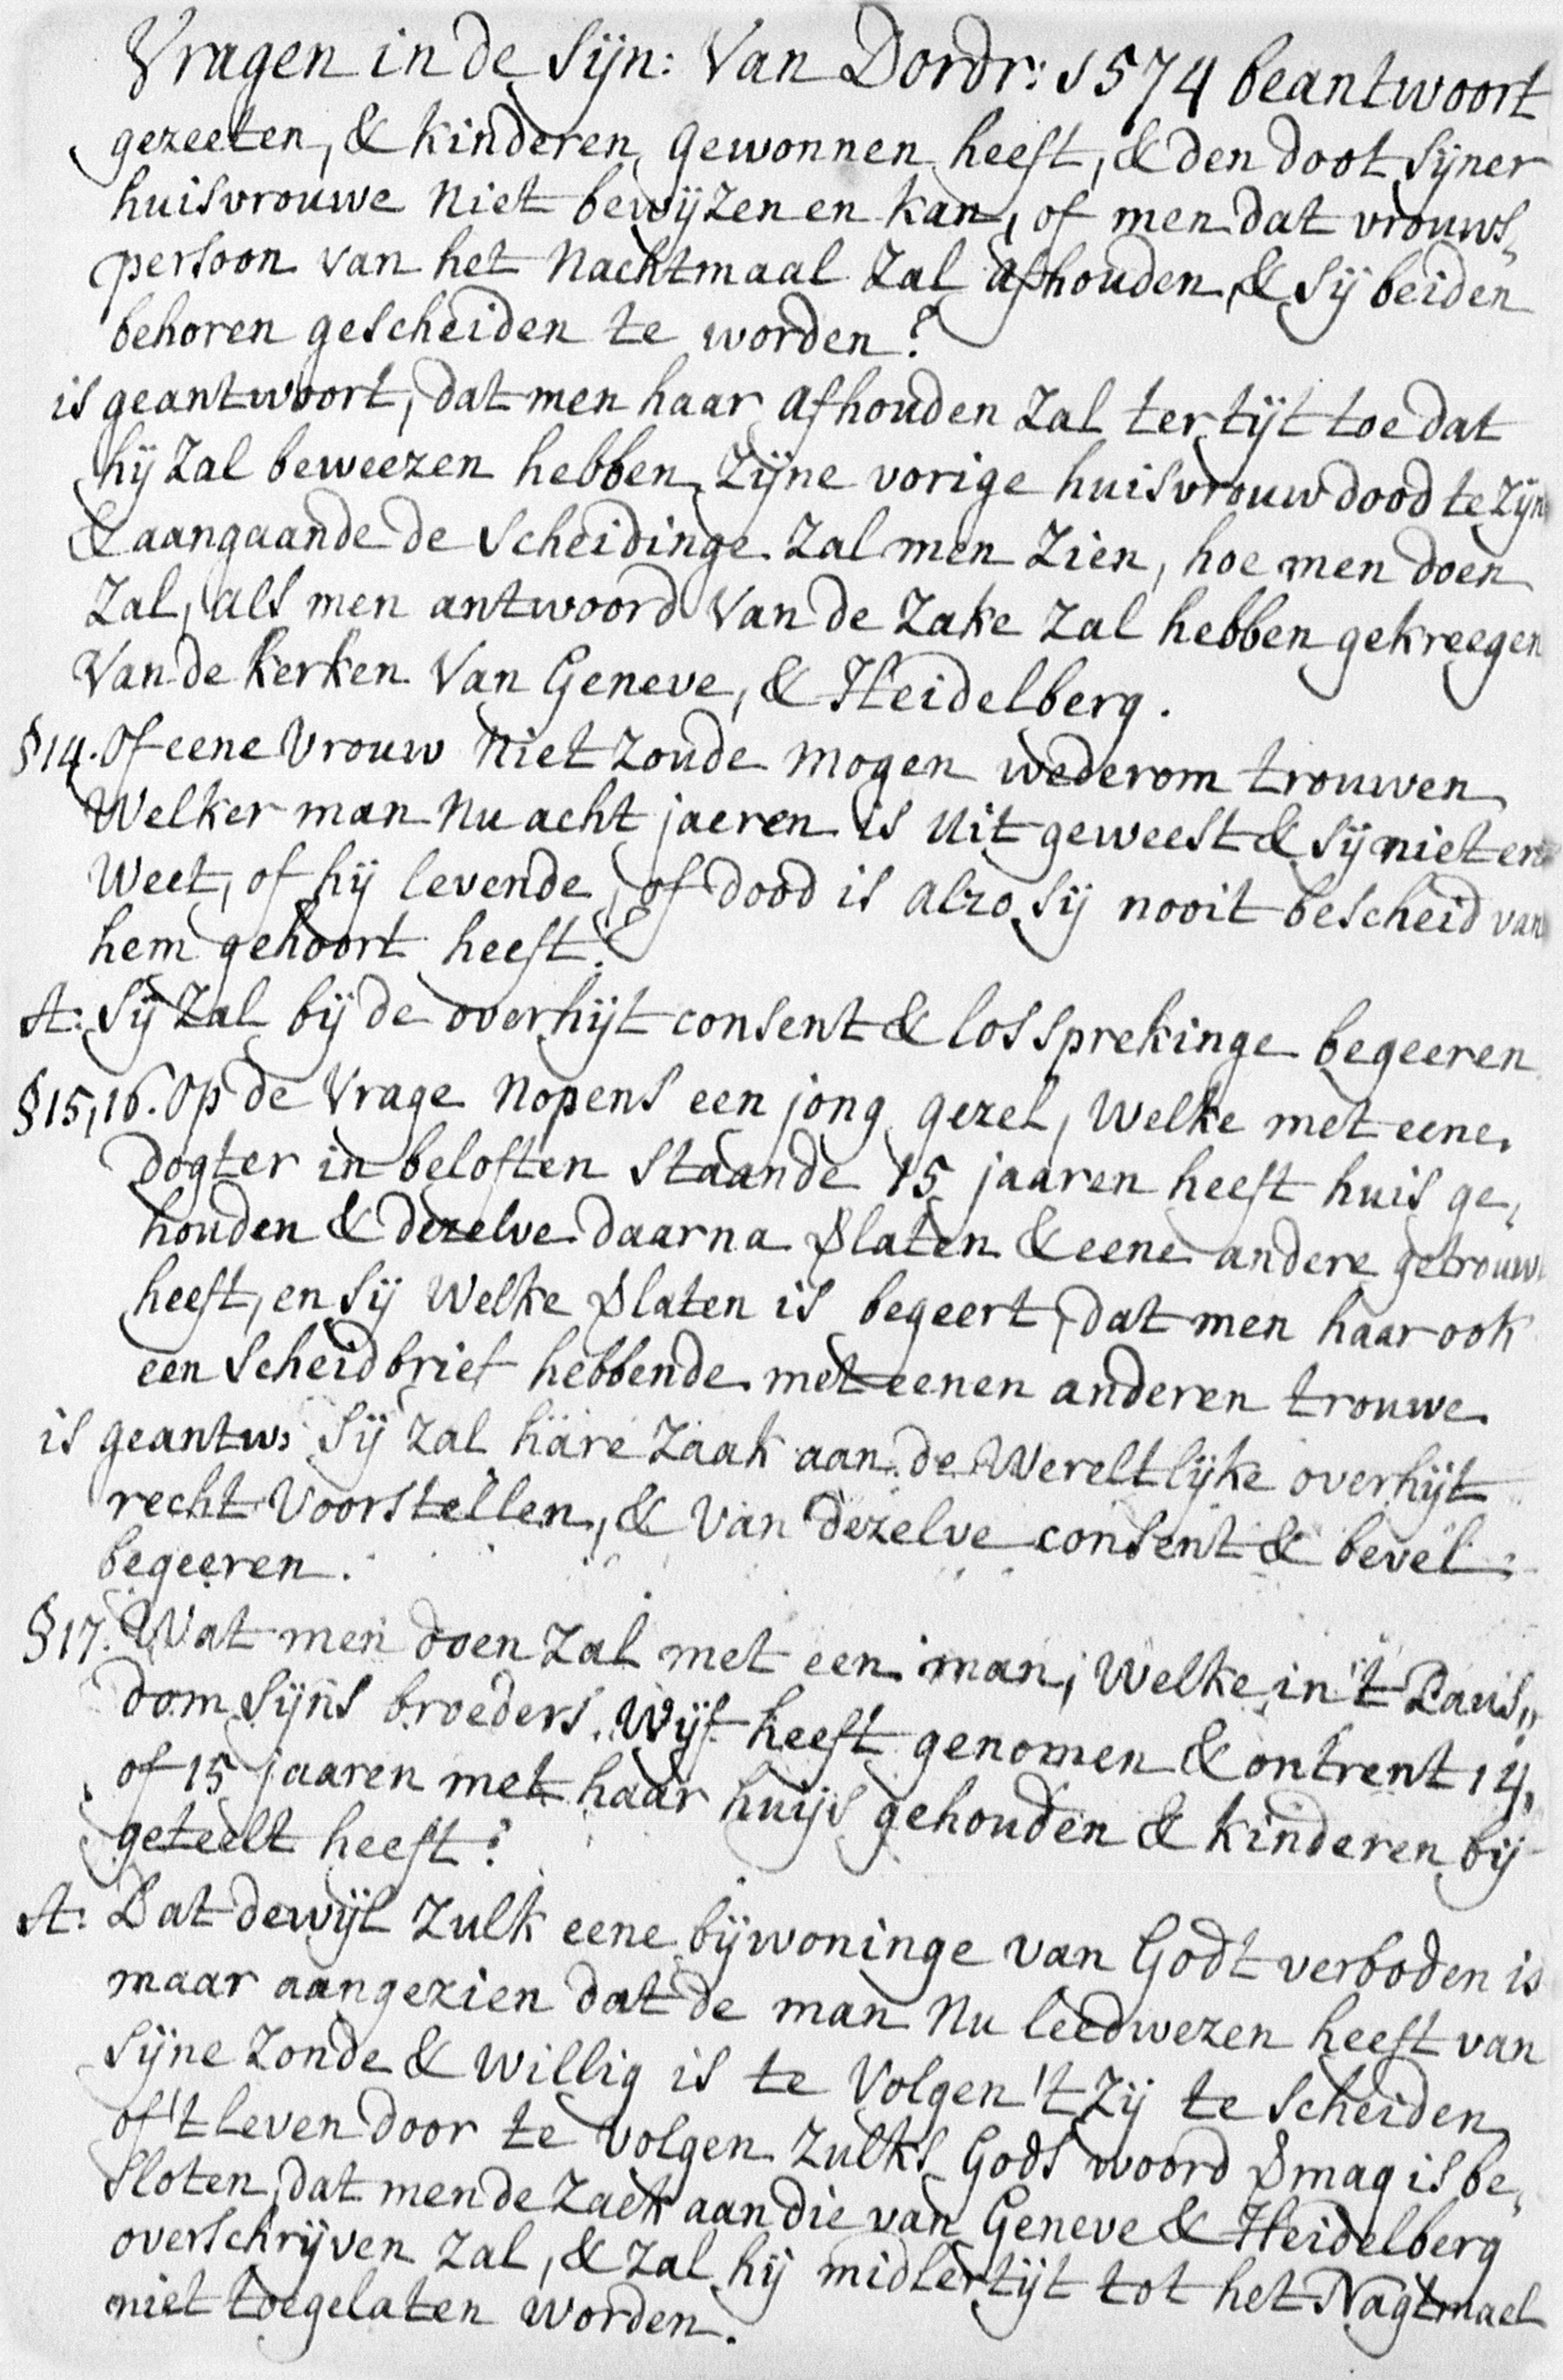 Vragen in de Sijn: Van Dordr: 1574 beantwoort
gezeeten, & kinderen gewonnen heeft, & den doot Sijner
huisvrouwe Niet bewijzen en kan, of men dat vrouws,
persoon van het Nachtmaal Zal afhouden, & Sij beiden
behoren gescheiden te worden?
is geantwoort, dat men haar afhouden Zal ter tijt toe dat
hij Zal beweezen hebben, Zijne vorige huisvrouw dood te Zijn
& aangaande de Scheidinge Zal men Zien, hoe men doen
Zal, als men antwoord Van de Zake Zal hebben gekreegen
Van de kerken Van Geneve, & Heidelberg.
§14. Of eene Vrouw Niet Zoude mogen wederom trouwen
Welker man Nu acht jaeren is uit geweest & Sij niet en
Weet, of hij levende, of dood is alzo Sij nooit bescheid van
hem gehoort heeft?
A: Sij Zal bij de overhijt consent & lossprekinge begeeren
§15,16. Op de Vrage Nopens een jong gezel, Welke met eene
Dogter in beloften Staande 15 jaaren heeft huis ge,
houden & dezelve daarna Vlaten & eene andere getrouwt
heeft, en Sij Welke Vlaten is begeert, dat men haar ook
een Scheidbrief hebbende met eenen anderen trouwe.
is geantw: Sij Zal hare Zaak aan de Wereltlijke overhijt
recht Voorstellen, & Van dezelve consent & bevel
begeeren.
§17. Wat men doen Zal met een man, Welke in 't Paus,,
dom Sijns broeders Wijf heeft genomen & ontrent 14,
of 15 jaaren met haar huijs gehouden & kinderen bij
geteelt heeft?
A: Dat dewijl Zulk eene bijwoninge van Godt verboden is
maar aangezien dat de man Nu leedwezen heeft van
Sijne Zonde & Willig is te Volgen 't Zij te Scheiden
of 't leven door te Volgen Zulks Gods woord Vmag is be,
Sloten, dat men de Zaek aan die van Geneve & Heidelberg
overschrijven Zal, & Zal hij midlertijt tot het Nagtmael
niet toegelaten worden.